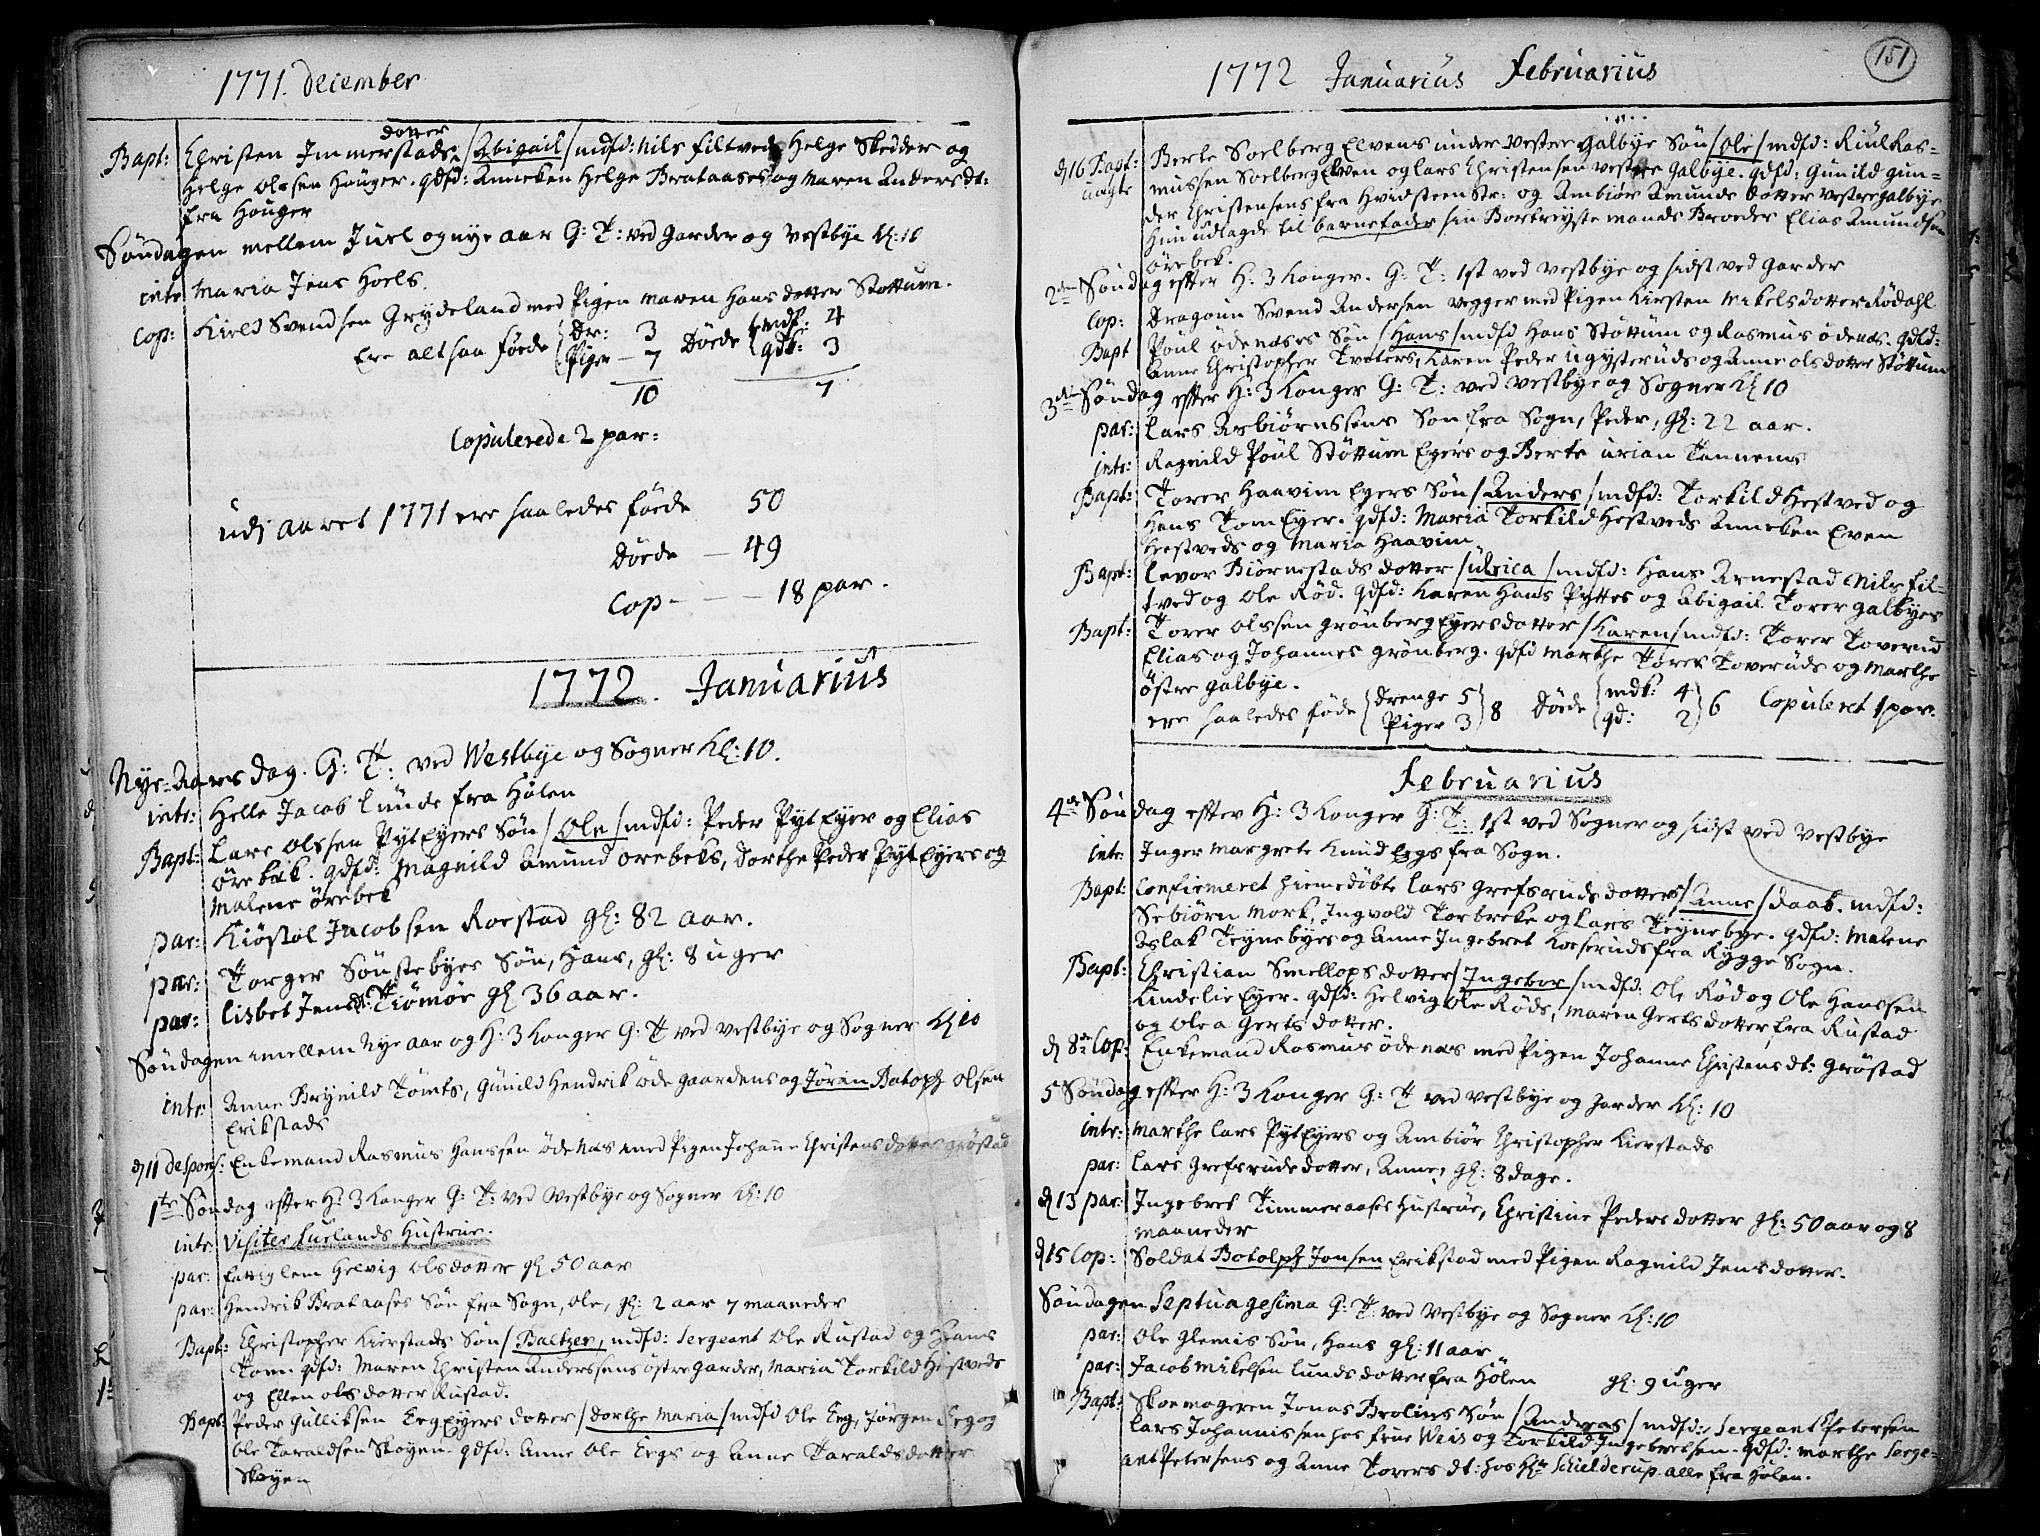 1771. December
Bapt: Christen Immerstads dotter /Abigail/ mdfd: Nils Filtved Helge Skedder og
Helge Olssen Houger. qdfd: Anneken Helge Brataases og Maren Anders dt:
fra Houger
Søndagen mellem Juel og nye aar G: T: ved Garder og Vestbye Kl: 10
intr Maria Jens Hoels.
Cop: Kield Svendsen Grydeland med Pigen Maren Hans dotter Støttum.
Ere altsaa føede Dr: 3 Døede mdk: 4
Piger — 7 qdk: 3
10 7
Copulerede 2 par:
udj aaret 1771 ere saaledes føede 50
Døede — 49
Cop — — — 18 par.
1772. Januarius
Nye-Aarsdag. G: T: ved Westbye og Sogner Kl: 10.
intr: Helle Jacob Lunde fra Hølen
Bapt: Lars Olssen Pyt Eyers Søn /Ole/ mdfd: Peder Pyt Eyer og Elias
ørebek. qdfd: Magnild Amund orebeks, Dorthe Peder Pyt Eyers og
Malene ørebek
par: Kiøstol Jacobsen Roestad gl: 82 aar.
par: Torger Sønstebyes Søn, Hans, gl: 8 uger
par: Lisbet Jens dt: Tiømøe gl 36 aar.
Søndagen imellem Nye aar og H: 3 Konger G: T ved Vestbye og Sogner Kl 10
intr: Anne Brynild Tømts, Gunild Hendrik øde gaardens og Jøren Botoph Olsen
Erikstads
d 11 despons: Enkemand Rasmus Hanssen ødenæs med Pigen Johanne Christens dotter Grøstad
1te Søndag effter H: 3 Konger G: T: ved Vestbye og Sogner Kl: 10
intr: Visiteer Kuelands Hustrue.
par: fattiglem Helvig Olsdotter gl 50 aar
par: Hendrik Brataases Søn fra Sogn, Ole, gl: 2 aar 7 maaneder
Bapt: Christopher Kierstads Søn /Baltzer, mdfd: Sergeant Ole Rustad og Hans
Tom. qdfd: Maren Christen Anderssens østre Garder, Maria Torkild Hestveds
og Ellen Ols dotter Rustad.
Bapt: Peder Gulliksen Eeg Eyers dotter /Dorthe Maria/ mdfd Ole Eeg, Jørgen Eeg og
Ole Taraldsen Skøyen. qdfd: Anne Ole Eegs og Anne Taralds dotter
Skøyen
1772 Januarius Februarius
151
d 16 Bapt: Berte Soelberg Elvens under Vester Galbye Søn /Ole/ mdfd: Riul Ras=
uægte mussen Soelberg Elven og Lars Christensen vestre Galbye. qdfd: Gunild Gun=
der Christensens fra Hvidsteen Str: og Ambiør Amunds dotter Vestregalbye
Hun udlagde til barnefader sin Bortreyste mands Broder Elias Amundsen
ørebek.
2den Søndag effter H: 3 Konger. G: T: 1st ved Vestbye og sidst ved Garder
Cop: Dragoun Svend Andersen Vegger med Pigen Kirsten Mikels dotter Rødahl
Bapt Poul ødenæses Søn /Hans/ mdfd Hans Støttum og Rasmus ødenæs. qdfd:
Anne Christopher Træters, Karen Peder ugysteruds og Anne Olsdotter Støttum
3die Søndag effter H: 3 Konger G: T: ved Vestbye og Sogner Kl 10
par: Lars Asbiørnssens Søn fra Sogn, Peder, gl: 22 aar.
intr: Ragnild Poul Støttum Eyers og Berte urian Tannems
Bapt: Torer Haavim Eyers Søn /Anders/ mdfd: Torkild Hestved og
Hans Tom Eyer. qdfd: Maria Torkild Hestveds Anneken Even
Hestveds og Maria Haavim
Bapt: Levor Biørnestads dotter /Ulrica/ mdfd: Hans Arnestad Nils Fil=
tved og Ole Rød. qdfd: Karen Hans Pyttes og Abigail Torer Galbyes
Bapt: Torer Olssen Grønberg Eyers dotter /Karen/ mdfd: Torer Toverud
Elias og Johannes Grønberg. qdfd Marthe Torer Toveruds og Marthe
østre Galbye.
ere saaledes føde Drenge 5 Piger 3 8 Døede mdk: 4 qd: 2 6 Copuleret 1 par.
Februarius
4de Søndag effter H: 3 Konger G: T: 1st ved Sogner og sidst ved Vestbye
intr: Inger Margrete Knud Eegs fra Sogn.
Bapt: Confirmeret hiemedøbte Lars Grefsruds dotters /Anne/ daab. mdfd:
Sebiørn Mork, Ingvold Torbrekke og Lars Teynebye. qdfd: Malene
Aslak Teynebyes og Anne Ingebret Korseruds fra Rygge Sogn.
Bapt: Christian Smellops dotter /Ingebor/ mdfd: Ole Rød og Ole Hanssen
Lindelie Eyer. qdfd: Helvig Ole Røds, Maren Gerts dotter fra Rustad
og Olea Gerts dotter.
d 8de Cop: Enkemand Rasmus ødenæs med Pigen Johanne Christens dt: Grøstad
5 Søndag effter H: 3 Konger G: T ved Vestbye og Garder Kl: 10
intr: Marthe Lars Pyt Eyers og Ambiør Christopher Kierstads
par: Lars Grefsruds dotter, Anne, gl: 8 dage.
d 13 par: Ingebret Timmeraases Hustrue, Christine Peders dotter gl: 50 aar og 8
maaneder
d 15 Cop: Soldat Botolph Jonsen Erikstad med Pigen Ragnild Jens dotter.
Søndagen Septuagesima G: T: ved Vestbye og Sogner Kl: 10
par: Ole Glemis Søn, Hans gl: 11 aar
par: Jacob Mikelsen Lunds dotter fra Hølen gl: 9 uger
Bapt: Skoemageren Jonas Brolins Søn /Andreas/ mdfd: Sergeant Petersen
Lars Johannissen hos frue Weis og Torkild Ingebretsen. qdfd: Marthe Serge=
ant Petersens og Anne Torers dt: hos Hr Schielderup. alle fra Hølen.